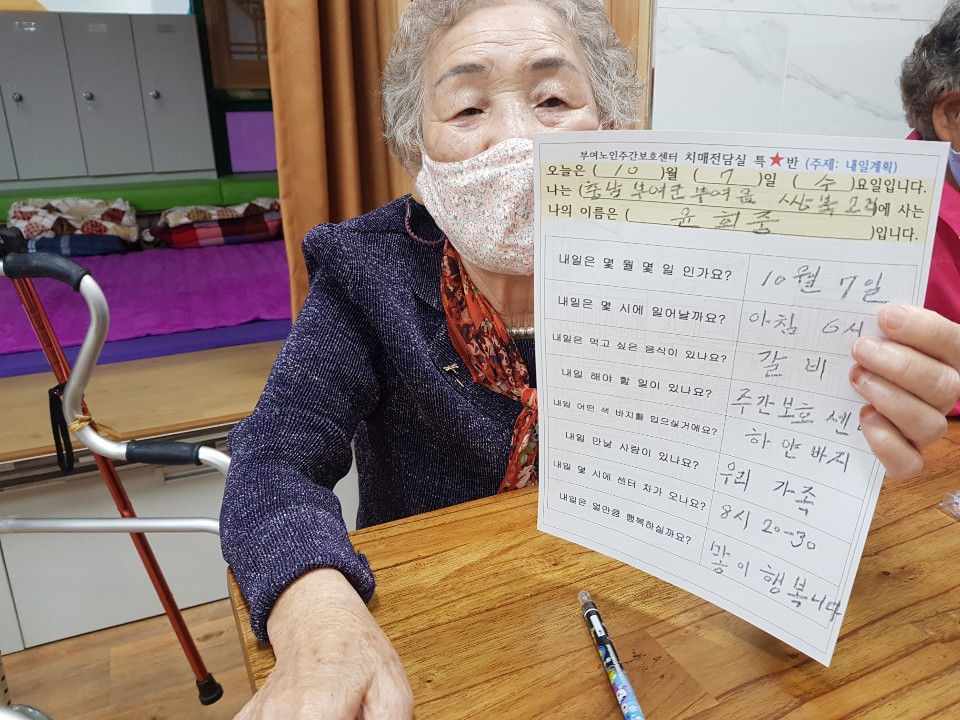 부여노인주간보호센터 치매전담실 특★반 (주제: 내일계획)
오늘은 ( 10 )월 ( 7 )일 ( 수 )요일입니다.
나는 (충남 부여군 부여읍 쌍북리)에 사는
나의 이름은 ( 윤희중 )입니다.
내일은 몇 월 몇 일 인가요? 10월 7일
내일은 몇 시에 일어날까요? 아침 6시
내일은 먹고 싶은 음식이 있나요? 갈비
내일 해야 할 일이 있나요? 주간보호 센
내일 어떤 색 바지를 입으실거에요? 하얀바지
내일 만날 사람이 있나요? 우리 가족
내일 몇 시에 센터 차가 오나요? 8시 20-30
내일은 얼만큼 행복하실까요? 많이 행복니다